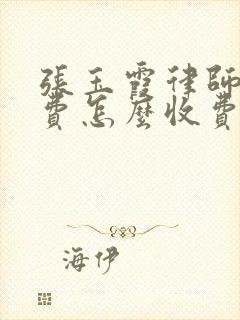 張玉霞律師
費怎麼收費
海伊